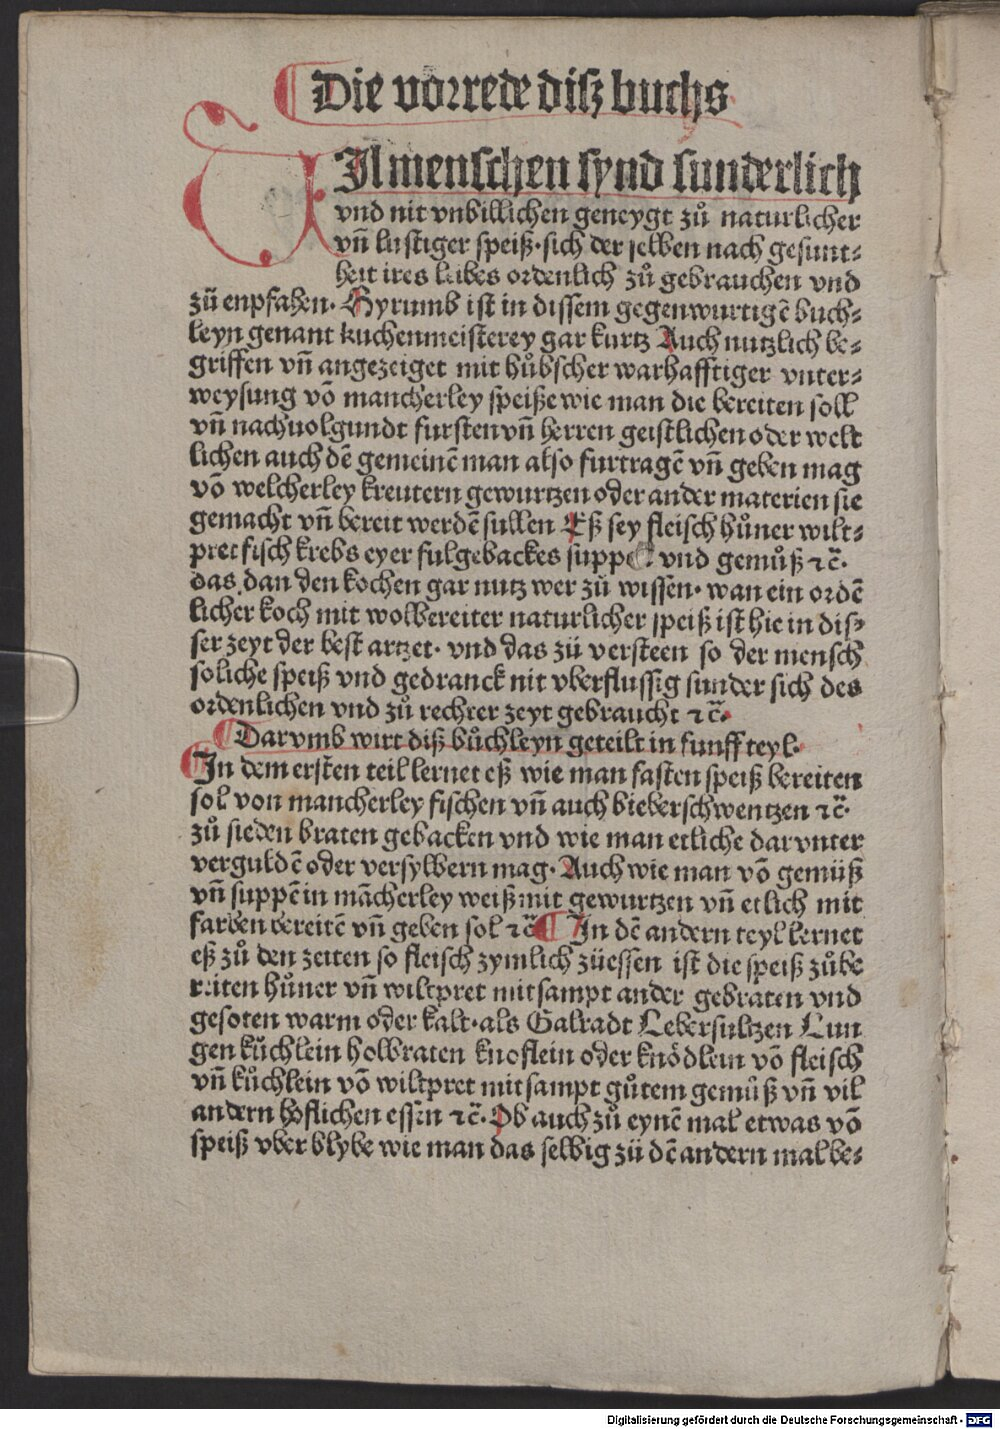 Die vorrede disz buchs
VIl menschen synd sunderlich
vnd nit vnbillichen geneygt zů naturlicher
vñ lustiger speiß·sich der selben nach gesunt⸗
heit ires leibes ordenlich zů gebrauchen vnd
zů enpfahen· Hyrumb ist in dissem gegenwurtigē buch⸗
leyn genant kuchenmeisterey gar kurtz Auch nutzlich be⸗
griffen vñ angezeiget mit hůbscher warhafftiger vnter⸗
weysung vō mancherley speiße wie man die bereiten soll
vñ nachuolgundt fursten vñ herren geistlichen oder welt
lichen auch dē gemeinē man also furtragē vñ geben mag
vō welcherley kreutern gewurtzen oder ander materien sie
gemacht vñ bereit werdē sullen Eß sey fleisch hůner wilt⸗
pret fisch krebs eyer fulgebackes suppe vnd gemůß ⁊c̄·
das dan den kochen gar nutz wer zů wissen· wan ein ordē
licher koch mit wolbereiter naturlicher speiß ist hie in dis⸗
ser zeyt der best artzet· vnd das zü versteen so der mensch
soliche speiß vnd gedranck nit vberflussig sunder sich des
ordenlichen vnd zů rechter zeyt gebraucht ⁊c̄·
Darvmb wirt diß bůchleyn geteilt in funff teyl·
In dem ersten teil lernet eß wie man fasten speiß bereiten
sol von mancherley fischen vñ auch bieberschwentzen ⁊c̄·
zů sieden braten gebacken vnd wie man etliche darvnter
verguldē oder versylbern mag· Auch wie man vō gemüß
vñ suppē in mācherley weiß mit gewurtzen vñ etlich mit
farben bereitē vñ geben sol ⁊c̄ In dē andern teyl lernet
eß zů den zeiten so fleisch zymlich züessen ist die speiß zůbe
reiten hůner vñ wiltpret mitsampt ander gebraten vnd
gesoten warm oder kalt·als Galradt Lebersultzen Lun
gen kůchlein holbraten knoflein oder knödlein vō fleisch
vñ kůchlein vō wiltpret mitsampt gůtem gemůß vñ vil
andern hoflichen essen ⁊c̄· Ob auch zů eynē mal etwas vō
speiß vber blybe wie man das selbig zü dē andern mal be⸗
Digitalisierung gefördert durch die Deutsche Forschungsgemeinschaft · DFG